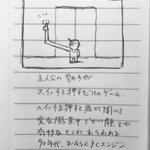 主人公の男の子が
スイッチを押すだけのゲーム。
スイッチを押すと扉が開いて
変な感じやでかい顔とか
奇妙なモノがあらわれる
90年代、おふらんくエンジン